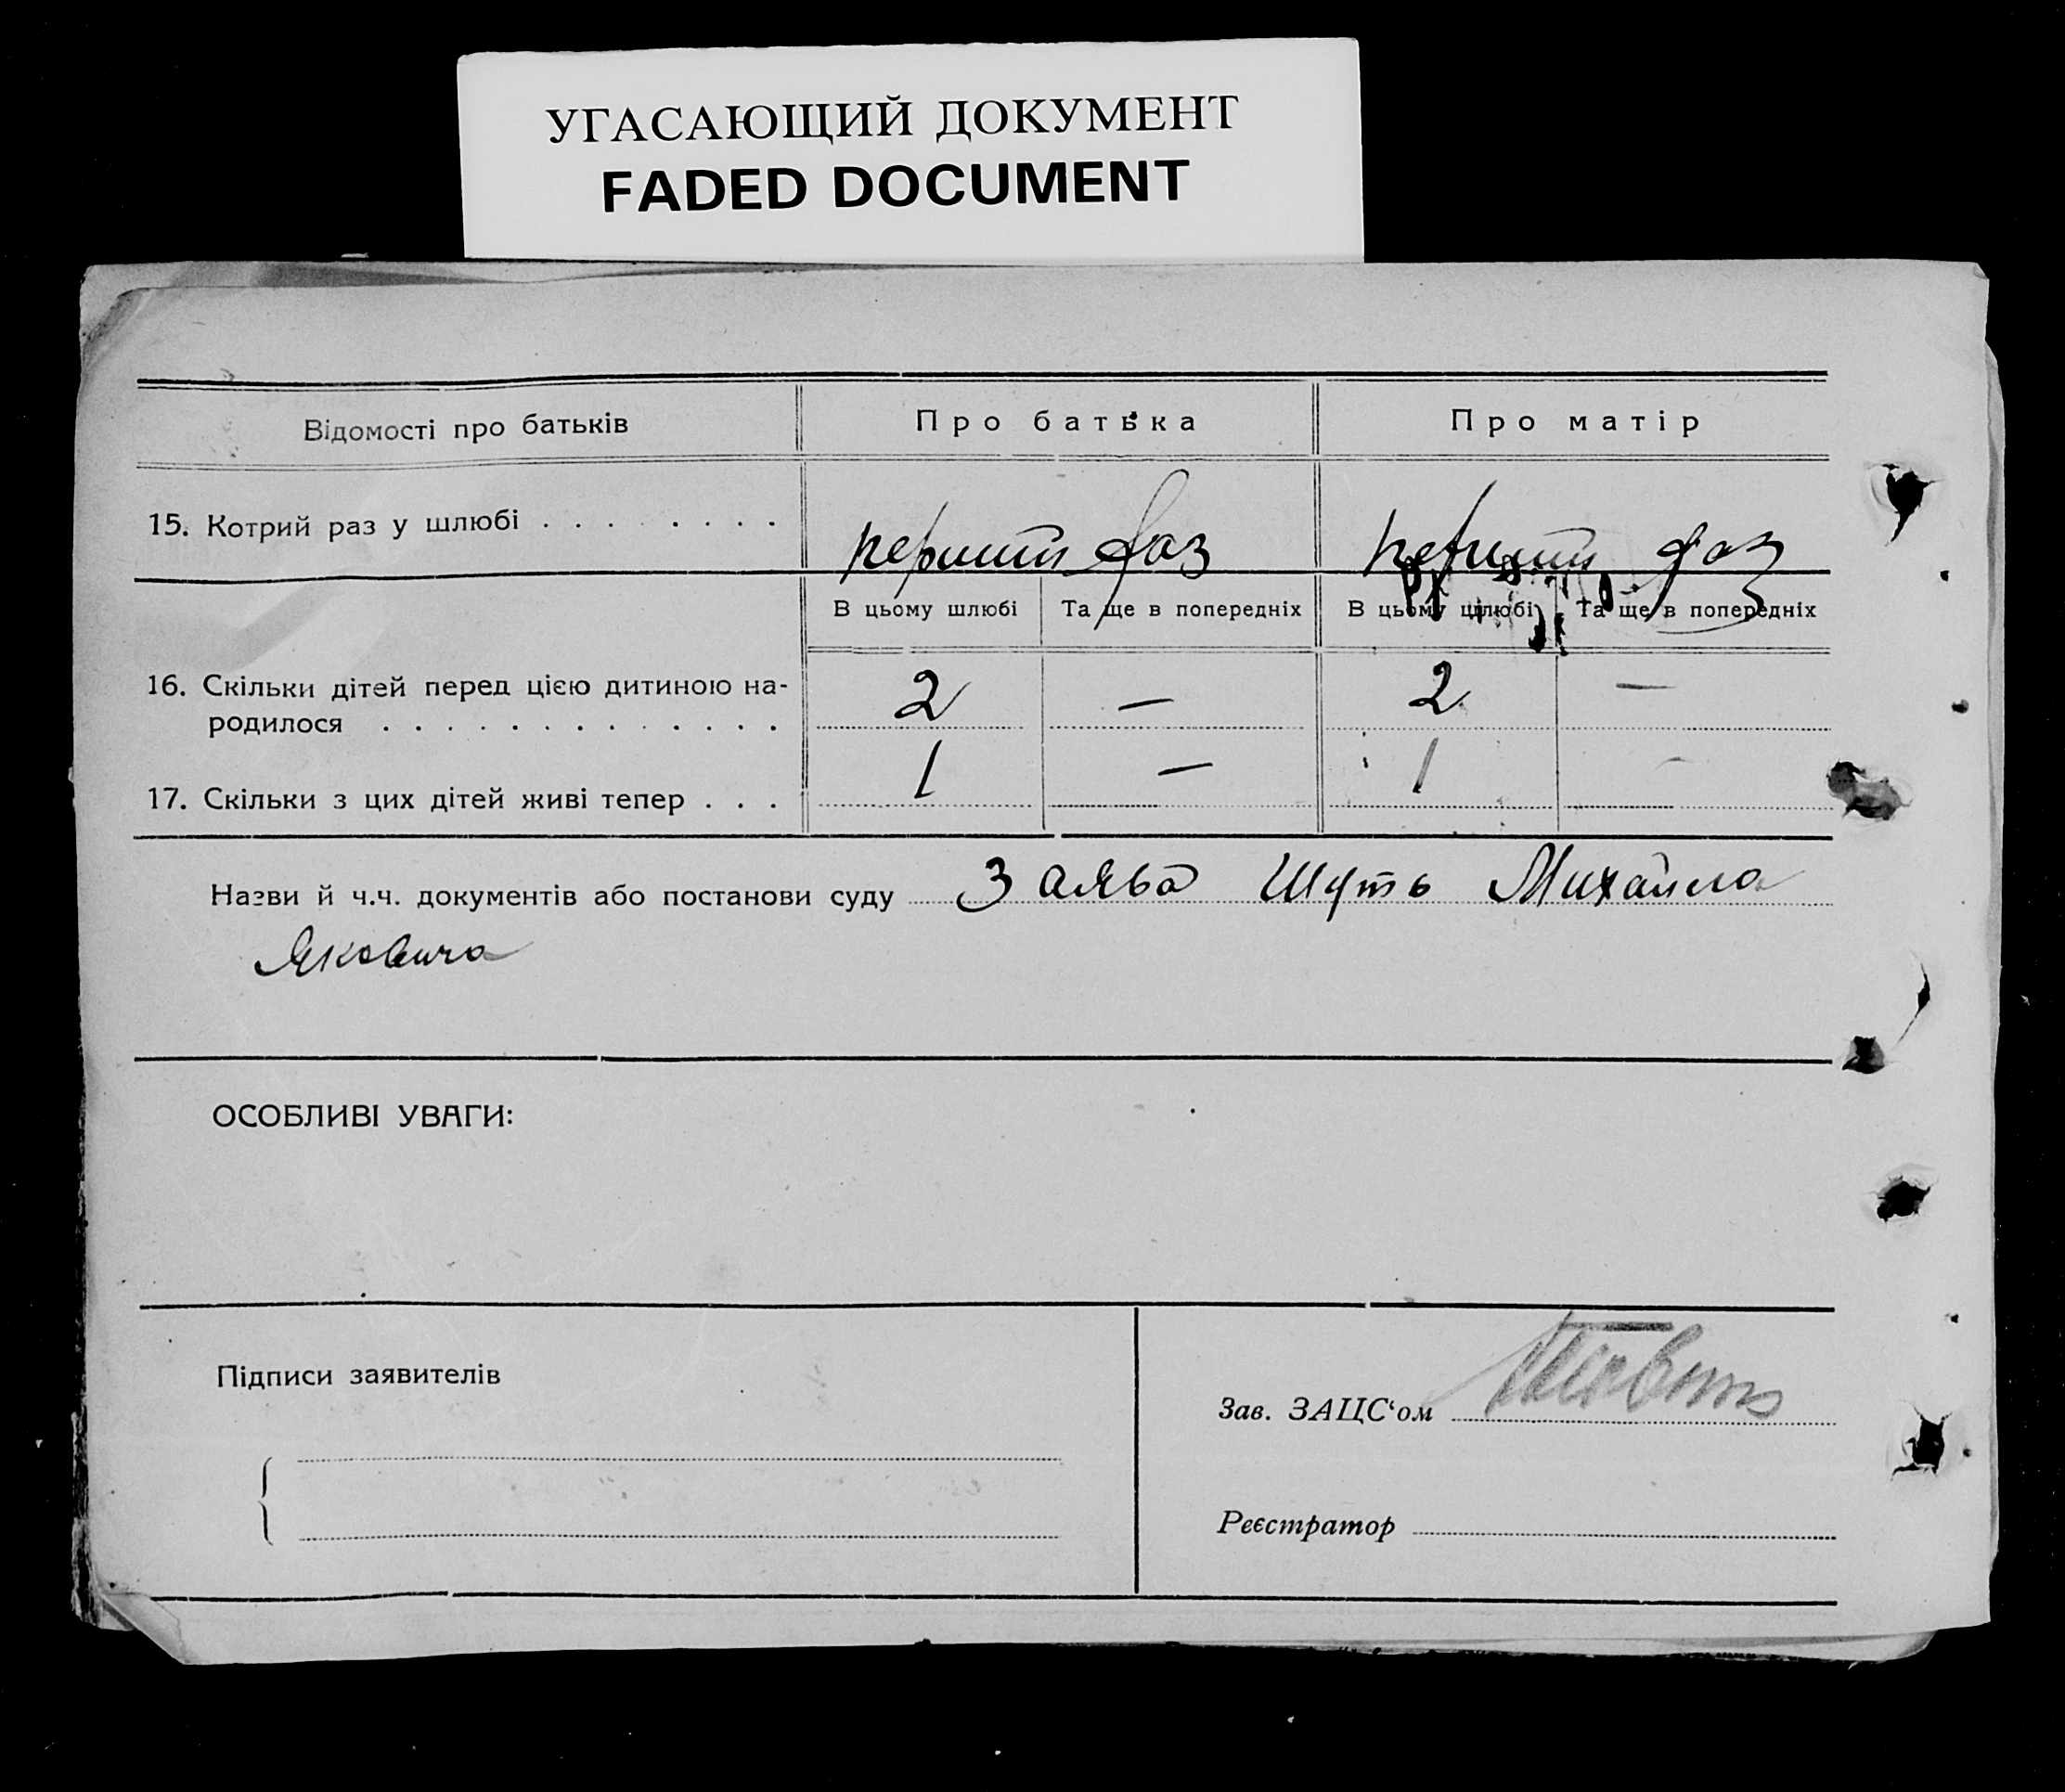 УГАСАЮЩИЙ ДОКУМЕНТ
FADED DOCUMENT
Відомості про батьків Про батька Про матір
15. Котрий раз у шлюбі . . . . . . . . перший раз перший раз
В цьому шлюбі Та ще в попередніх В цьому шлюбі Та ще в попередніх
16. Скільки дітей перед цією дитиною на-
родилося . . . . . . . . . . . . . 2 — 2 —
17. Скільки з цих дітей живі тепер . . . 1 — 1 —
Назви й ч.ч. документів або постанови суду Заява Шуть Михайла
Яковича
ОСОБЛИВІ УВАГИ:
Підписи заявителів
Зав. ЗАЦС‘ом
Реєстратор